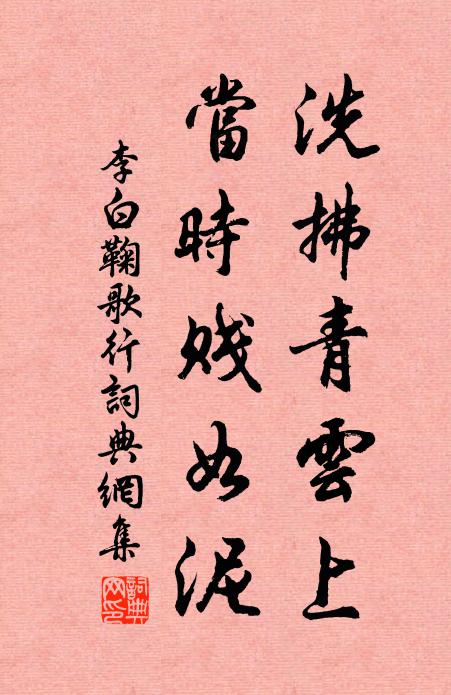 洗拂青雲上
當時賤如泥
李白鞠歌行詞典網集
詞典網印